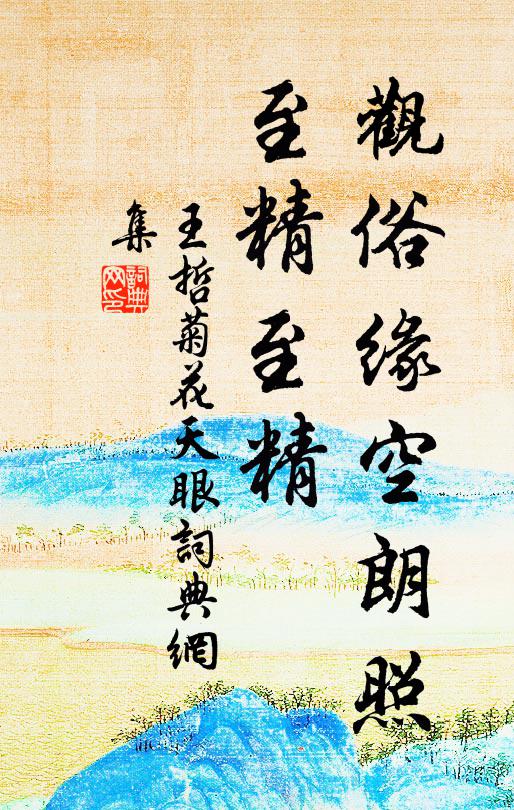 觀俗緣空朗照
至精至精
王哲菊花天眼詞典網
集
詞典
网印